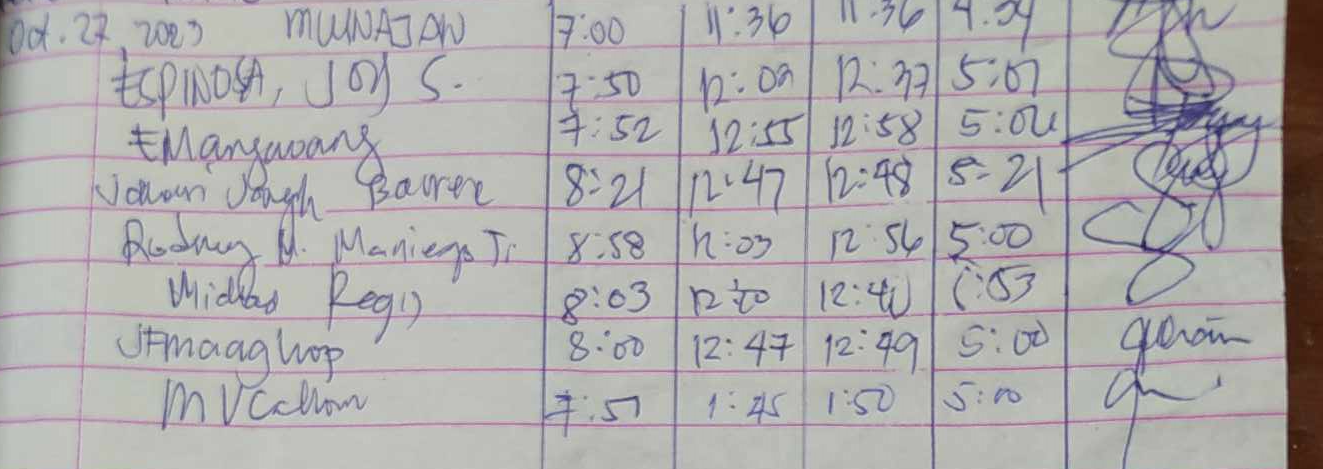 Oct. 27, 2023 MUNAJAN 7:00 11:36 11:36 4:34
ESPINOSA, JOY S. 7:50 12:09 12:37 5:07
EMangwang 7:52 12:55 12:58 5:04
8:21 12:47 12:48 5:21
Rodney M. Maniego Jr. 8:58 12:03 12:56 5:00
Midas Regis 8:03 12:20 12:40 5:03
JFmaaghop 8:00 12:47 12:49 5:00
7:51 1:45 1:50 5:00